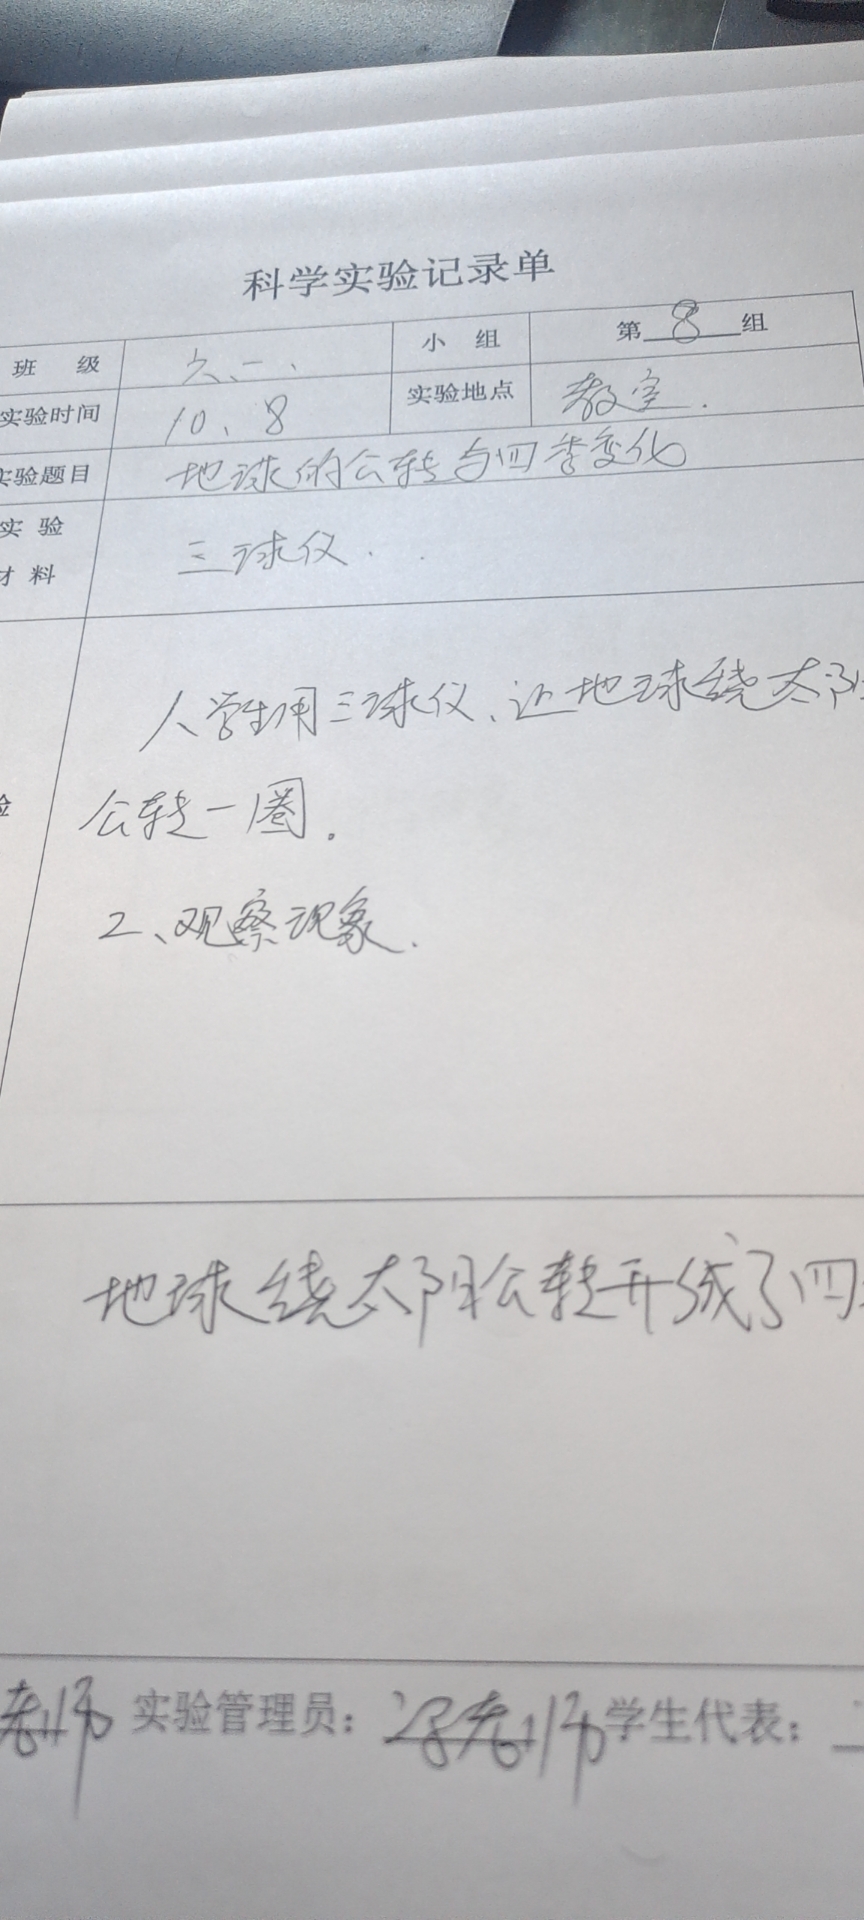 科学实验记录单
班 级 六、一、 小 组 第8组
实验时间 10、8 实验地点 教室.
实验题目 地球的公转与四季变化
实 验
材 料 三球仪.
人学生用三球仪、让地球绕太阳
验
公转一圈。
2、观察现象.
地球绕太阳公转形成了四
老师 实验管理员: 老师 学生代表: